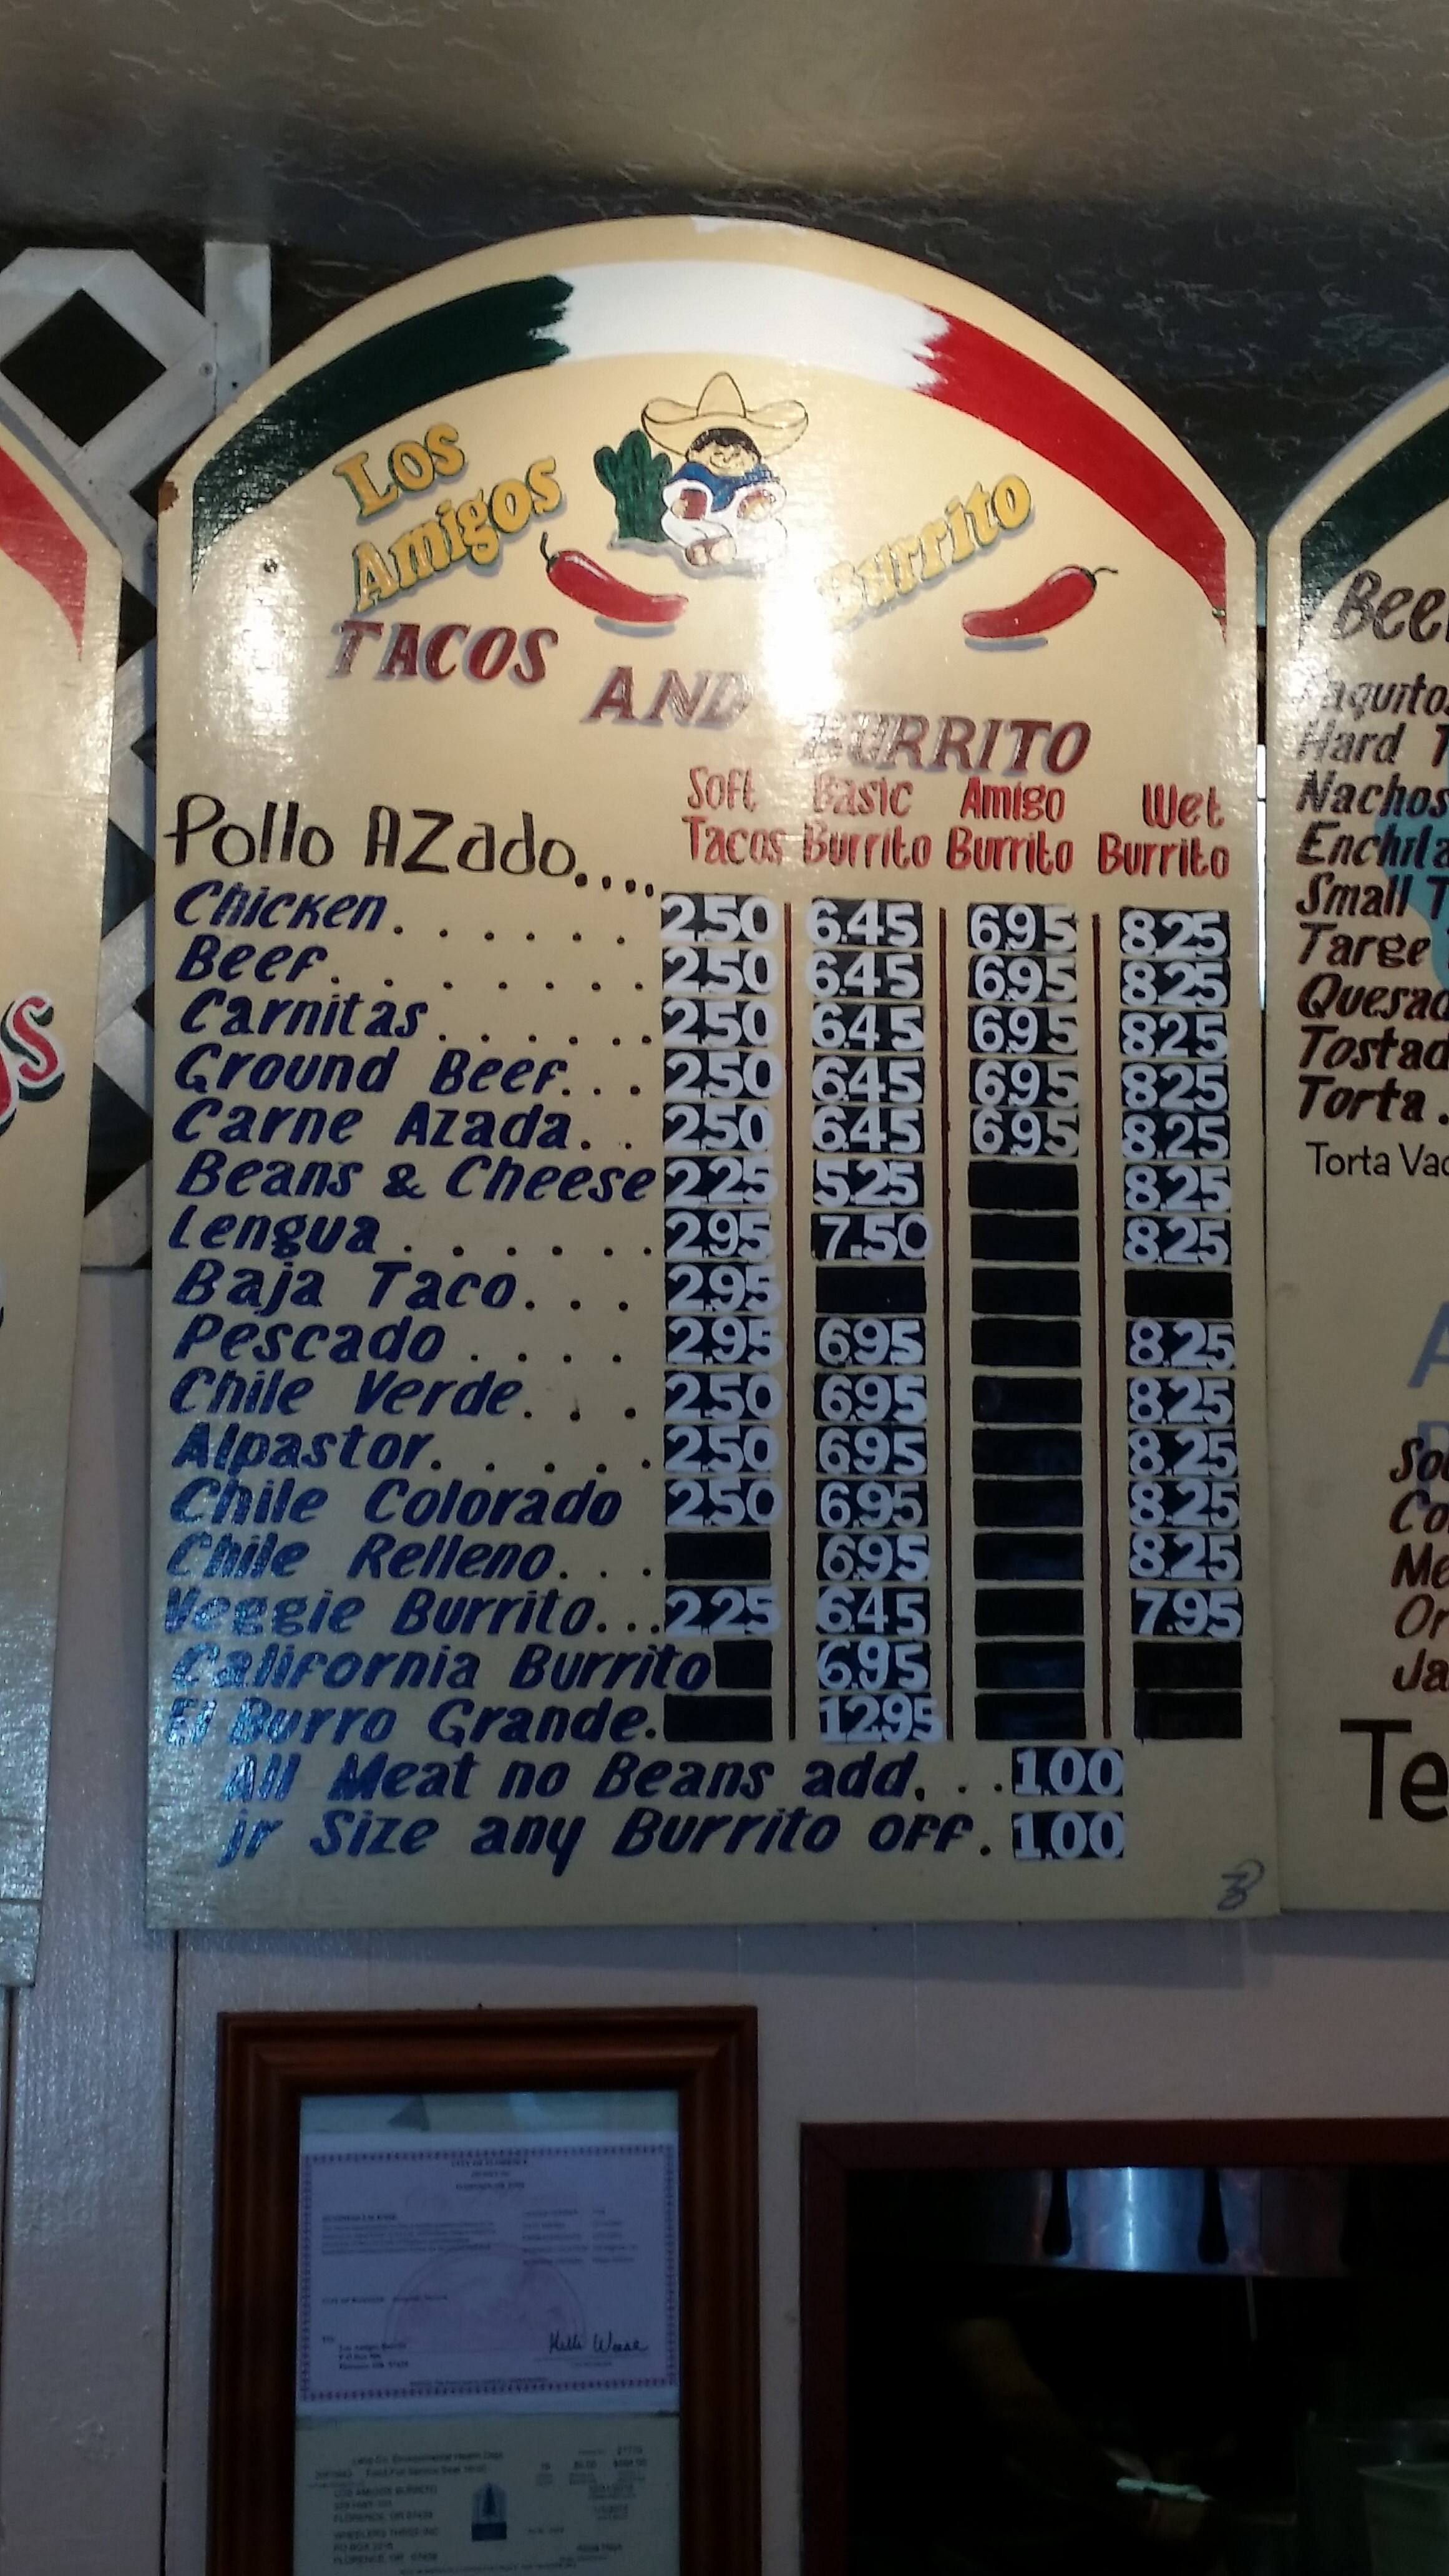 Los
Amigos
Burrito
TACOS AND BURRITO
Soft Tacos Basic Burrito Amigo Burrito Wet Burrito
Pollo AZado....
Chicken. . . . . . 2.50 6.45 6.95 8.25
Beef. . . . . . . 2.50 6.45 6.95 8.25
Carnitas. . . . . . 2.50 6.45 6.95 8.25
Ground Beef. . . 2.50 6.45 6.95 8.25
Carne Azada. . 2.50 6.45 6.95 8.25
Beans & Cheese 2.25 5.25 8.25
Lengua . . . . . . 2.95 7.50 8.25
Baja Taco. . . 2.95
Pescado . . . . 2.95 6.95 8.25
Chile Verde. . . 2.50 6.95 8.25
Alpastor. . . . . 2.50 6.95 8.25
Chile Colorado 2.50 6.95 8.25
Chile Relleno. . . 6.95 8.25
Veggie Burrito... 2.25 6.45 7.95
California Burrito 6.95
El Burro Grande. 12.95
All Meat no Beans add. . . 1.00
jr Size any Burrito off. 1.00
Bee
Taquitos
Hard T
Nachos
Enchila
Small T
Targe
Quesad
Tostad
Torta .
Torta Vac
A
So
Co
Me
Or
Ja
Te
CITY OF FLORENCE
LOS AMIGOS BURRITO
FLORENCE, OR 97439
PO BOX
FLORENCE OR 97439